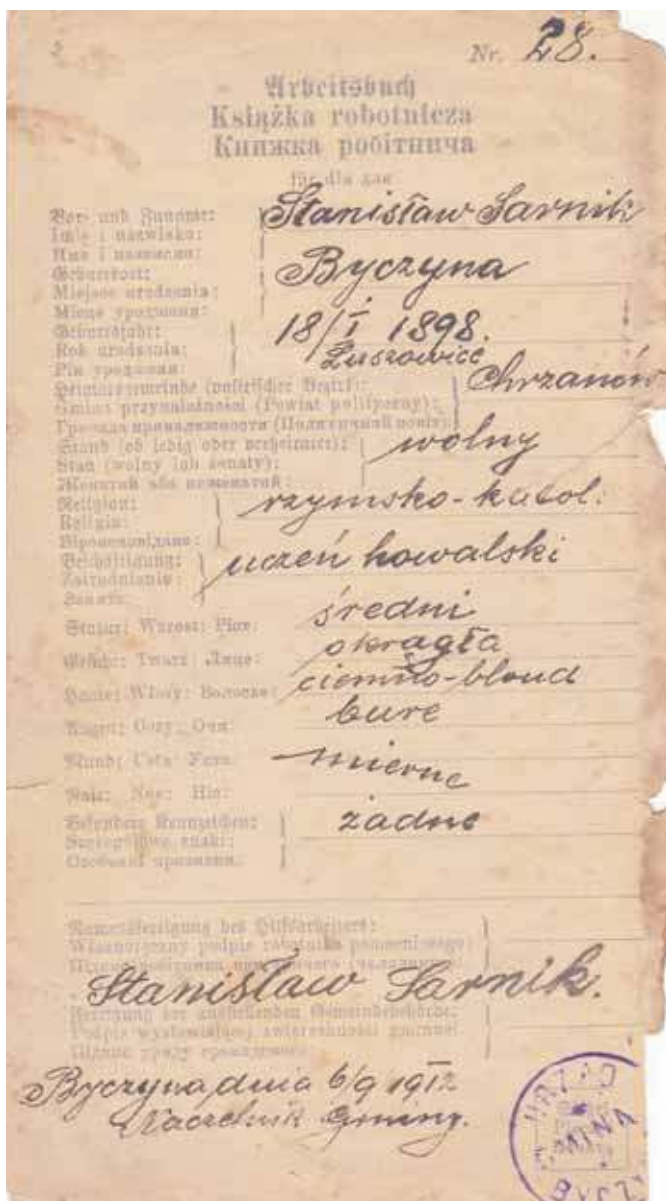 2
Nr. 28.
Arbeitsbuch
Książka robotnicza
Книжка робітнича
für dla для
Vor- und Zuname:
Imię i nazwisko:
Stanisław Sarnik
Имя і назвиско:
Geburtsort:
Miejsce urodzenia:
Byczyna
Місце уродженя:
Geburtsjahr:
Rok urodzenia:
18/I 1898.
Рік уродженя:
Luszowice
Heimatsgemeinde (politischer Bezirk):
Gmina przynależności (Powiat polityczny):
Chrzanów
Громада принадлежности (Политичний повіт):
Stand (ob ledig oder verheiratet):
Stan (wolny lub żonaty):
wolny
Женатий або неженатий:
Religion:
Religia:
rzymsko-katol.
Віроисповіданє:
Beschäftigung:
Zatrudnienie:
uczeń kowalski
Занятє:
Statur: Wzrost:
średni
Gesicht: Twarz: Лице:
okrągła
Haare: Włosy: Волосє:
ciemno-blond
Augen: Oczy: Очи:
bure
Mund: Usta:
mierne
Nase: Nos: Ніс:
Besondere Kennzeichen:
żadne
Szczególne znaki:
Особливі признаки:
Namensfertigung des Hilfsarbeiters:
Własnoręczny podpis robotnika pomocniczego:
Stanisław Sarnik.
Fertigung der ausstellenden Gemeindebehörde:
Podpis wystawiającej zwierzchności gminnej
Підпис уряду громадского
Byczyna dnia 6/9 1912
Naczelnik Gminy.
URZĄD
GMINA
BYCZ